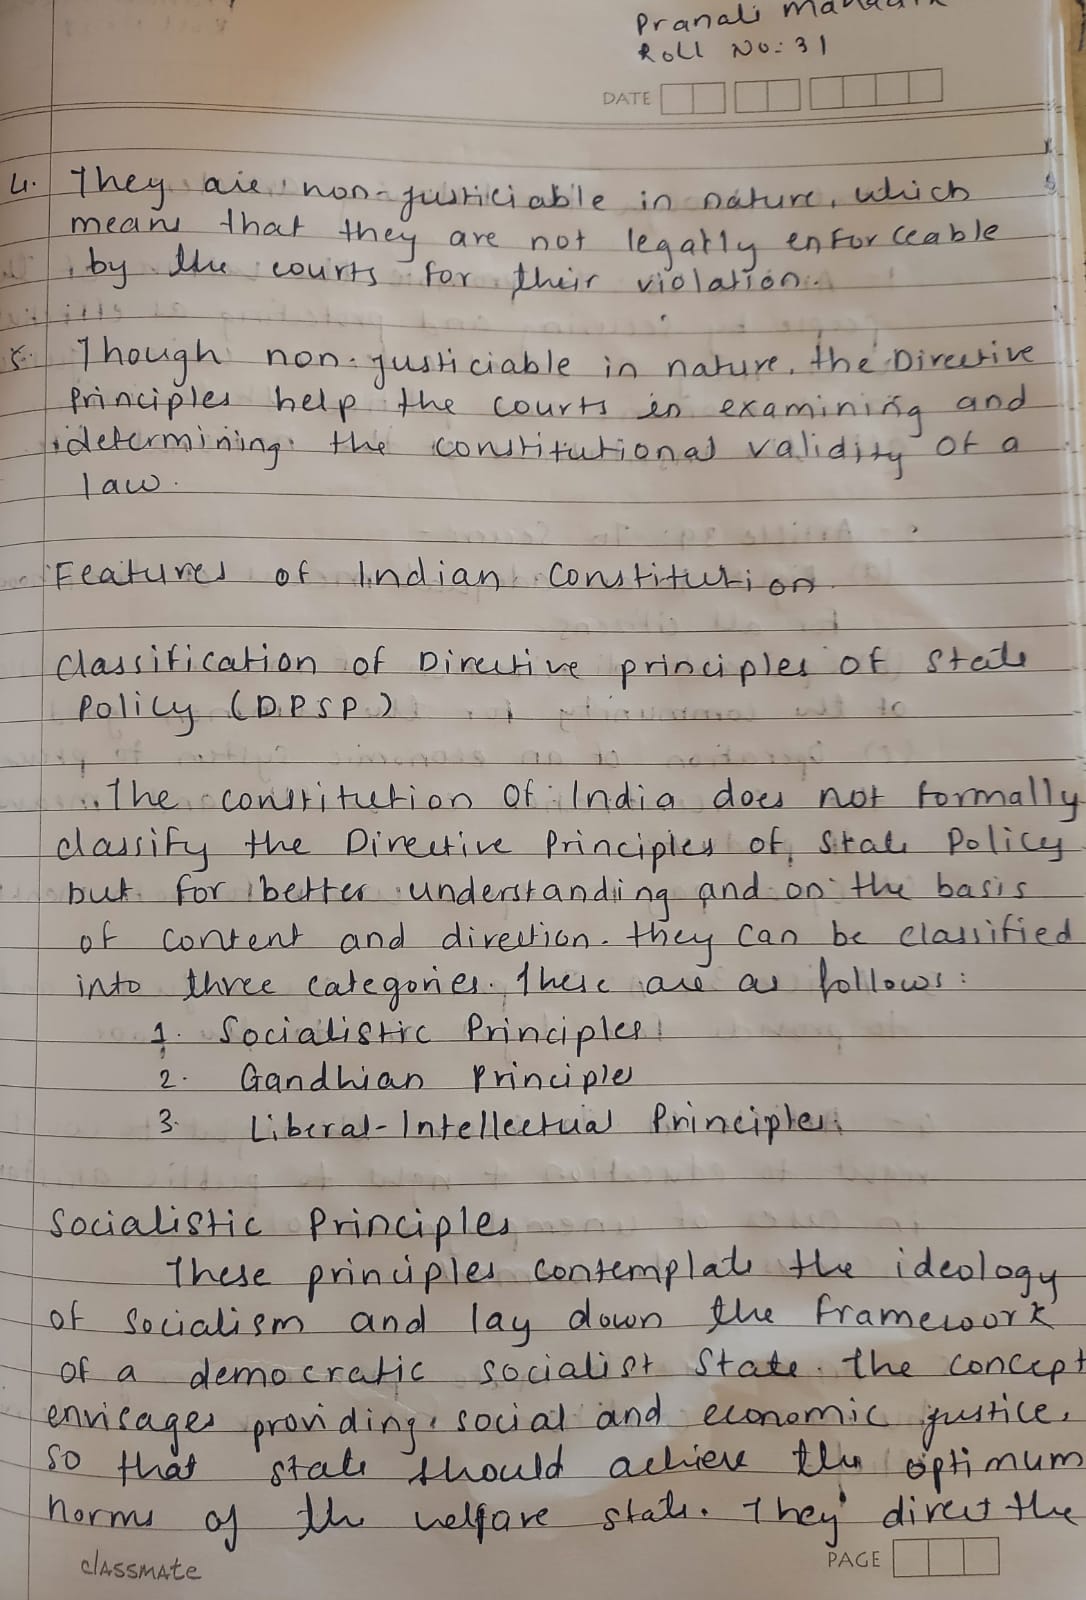 Pranali
Roll No: 31
DATE
4. They are non-justiciable in nature, which
means that they are not legally enforceable
by the courts for their violation.
5. Though non-justiciable in nature, the Directive
Principles help the courts in examining and
determining the constitutional validity of a
law.
Features of Indian Constitution
Classification of Directive principles of State
Policy (DPSP)
The constitution of India does not formally
classify the Directive Principles of State Policy
but for better understanding and on the basis
of content and direction. they can be classified
into three categories. These are as follows:
1. Socialistic Principles
2. Gandhian Principle
3. Liberal-Intellectual Principles
Socialistic Principles
These principles contemplate the ideology
of socialism and lay down the framework
of a democratic socialist State. The concept
envisages providing social and economic justice,
so that state should achieve the optimum
norms of the welfare state. They direct the
classmate
PAGE